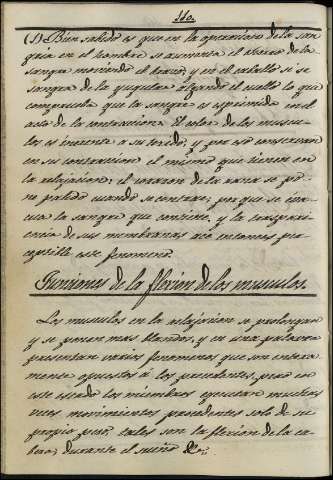 110.
(1) Bien sabido es que en la operacion de la san
gria en el hombre se aumenta el chorro de la
sangre moviendo el brazo, y en el caballo si se
sangra de la yugular alzando el cuello lo que
comprueba que la sangre es esprimida en el
acto de la contraccion. El color de los muscu-
los es inerente a su tejido, y por eso conservan
en su contraccion el mismo que tienen en
la relajacion; el corazon de la rana se po-
ne palido cuando se contrae; por que se
la sangre que contiene, y la trasparien
cia de sus membranas ace entonces per
ceptible este fenomeno.
Funciones de la flexion de los musculos.
Los musculos en la relajacion se prolongan
y se ponen mas blandos, y en una palabra
presentan varios fenomenos que son entera
mente opuestos á los precedentes, pero en
este estado los miembros ejecutan muchas
veces movimientos precedentes solo de su
propio peso, tales son la flexion de la ca
beza, durante el sueño &c.